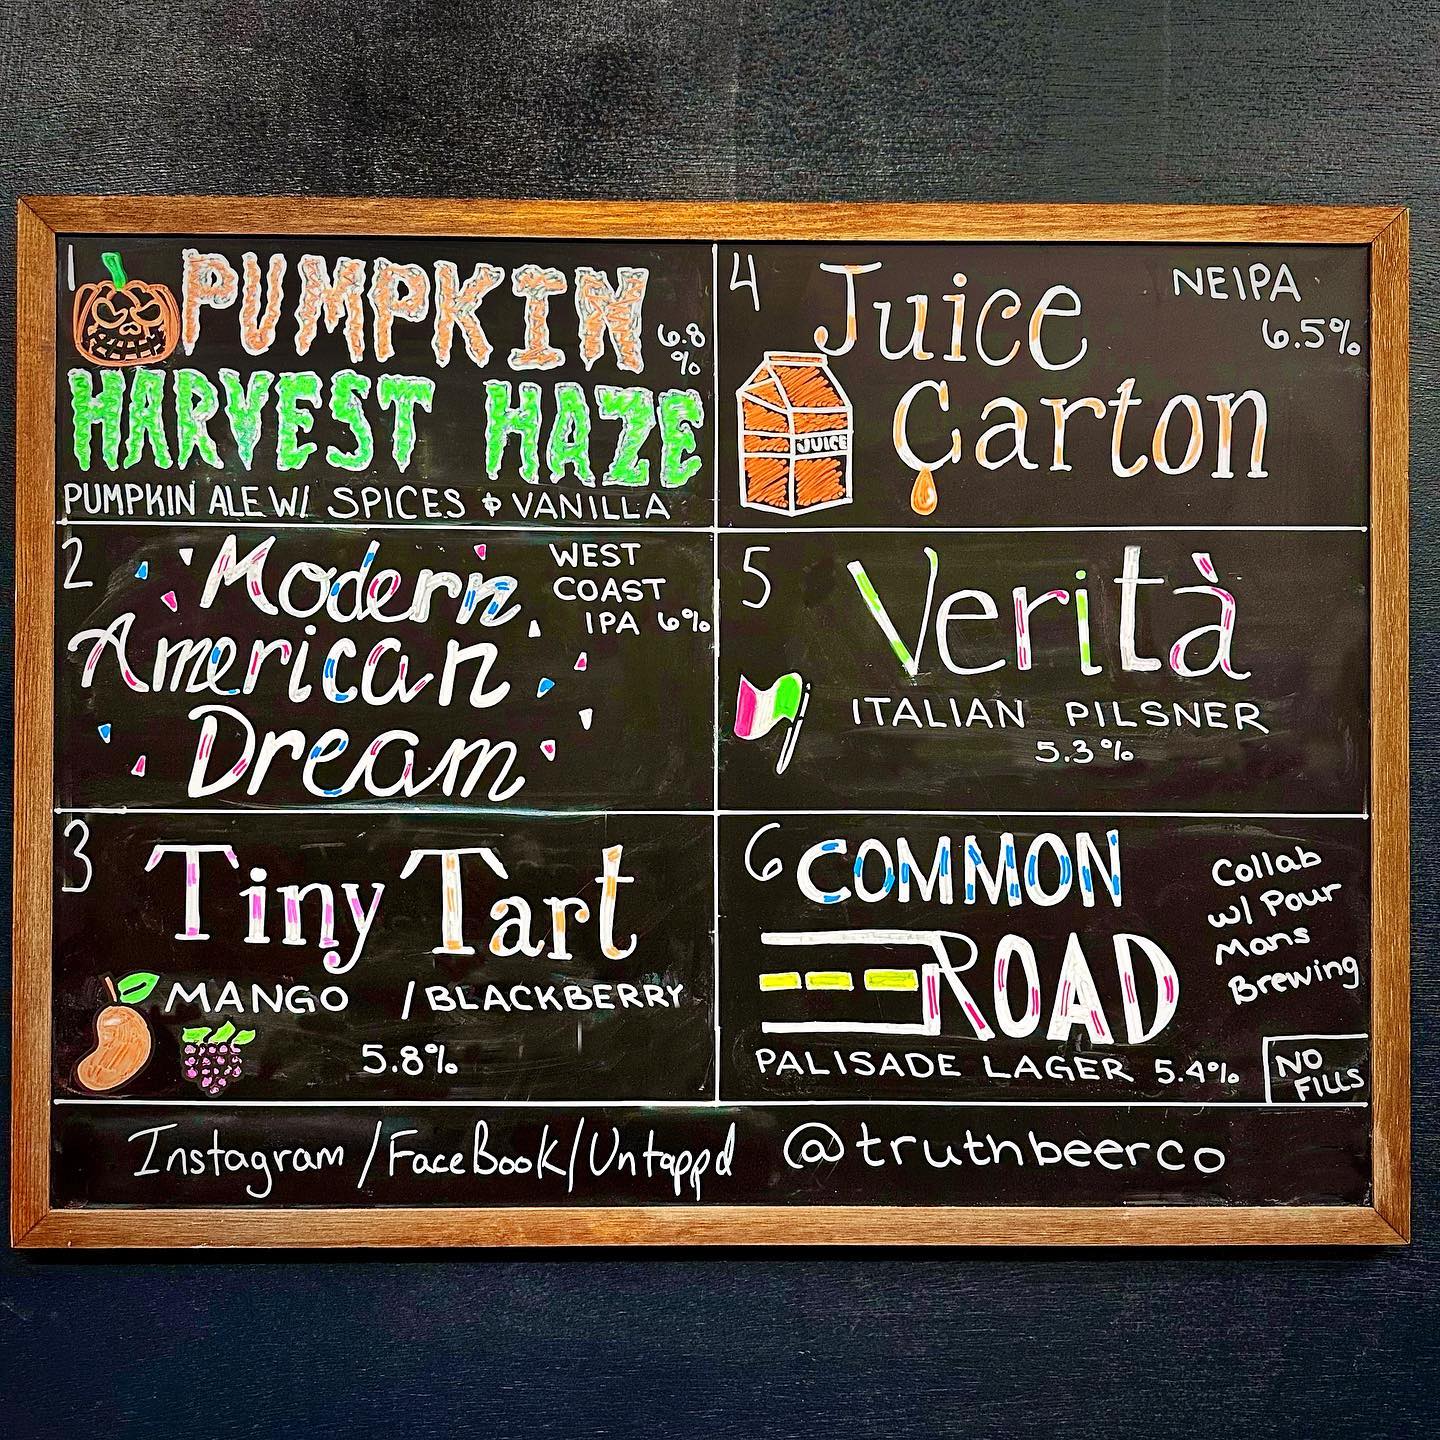 1
PUMPKIN
6.8
%
HARVEST HAZE
PUMPKIN ALE W/ SPICES & VANILLA
2
Modern
American
Dream
WEST
COAST
IPA 6%
3
Tiny Tart
MANGO / BLACKBERRY
5.8%
4
Juice
Carton
NEIPA
6.5%
JUICE
5
Verità
ITALIAN PILSNER
5.3%
6
COMMON
ROAD
Collab
w/ Pour
Mans
Brewing
PALISADE LAGER 5.4%
NO
FILLS
Instagram / FaceBook / Untappd @truthbeerco